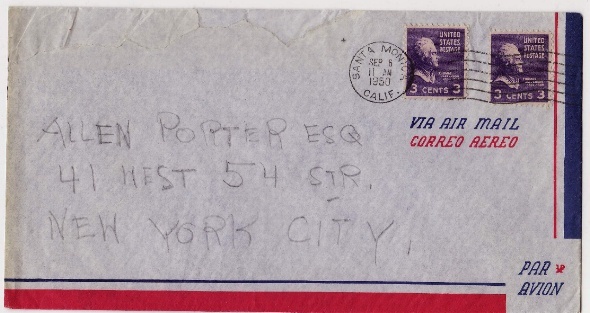 SANTA MONICA
SEP 6
11 AM
1950
CALIF.
UNITED STATES POSTAGE
3 CENTS 3
UNITED STATES POSTAGE
3 CENTS 3
VIA AIR MAIL
CORREO AEREO
ALLEN PORTER ESQ
41 WEST 54 STR.
NEW YORK CITY.
PAR
AVION